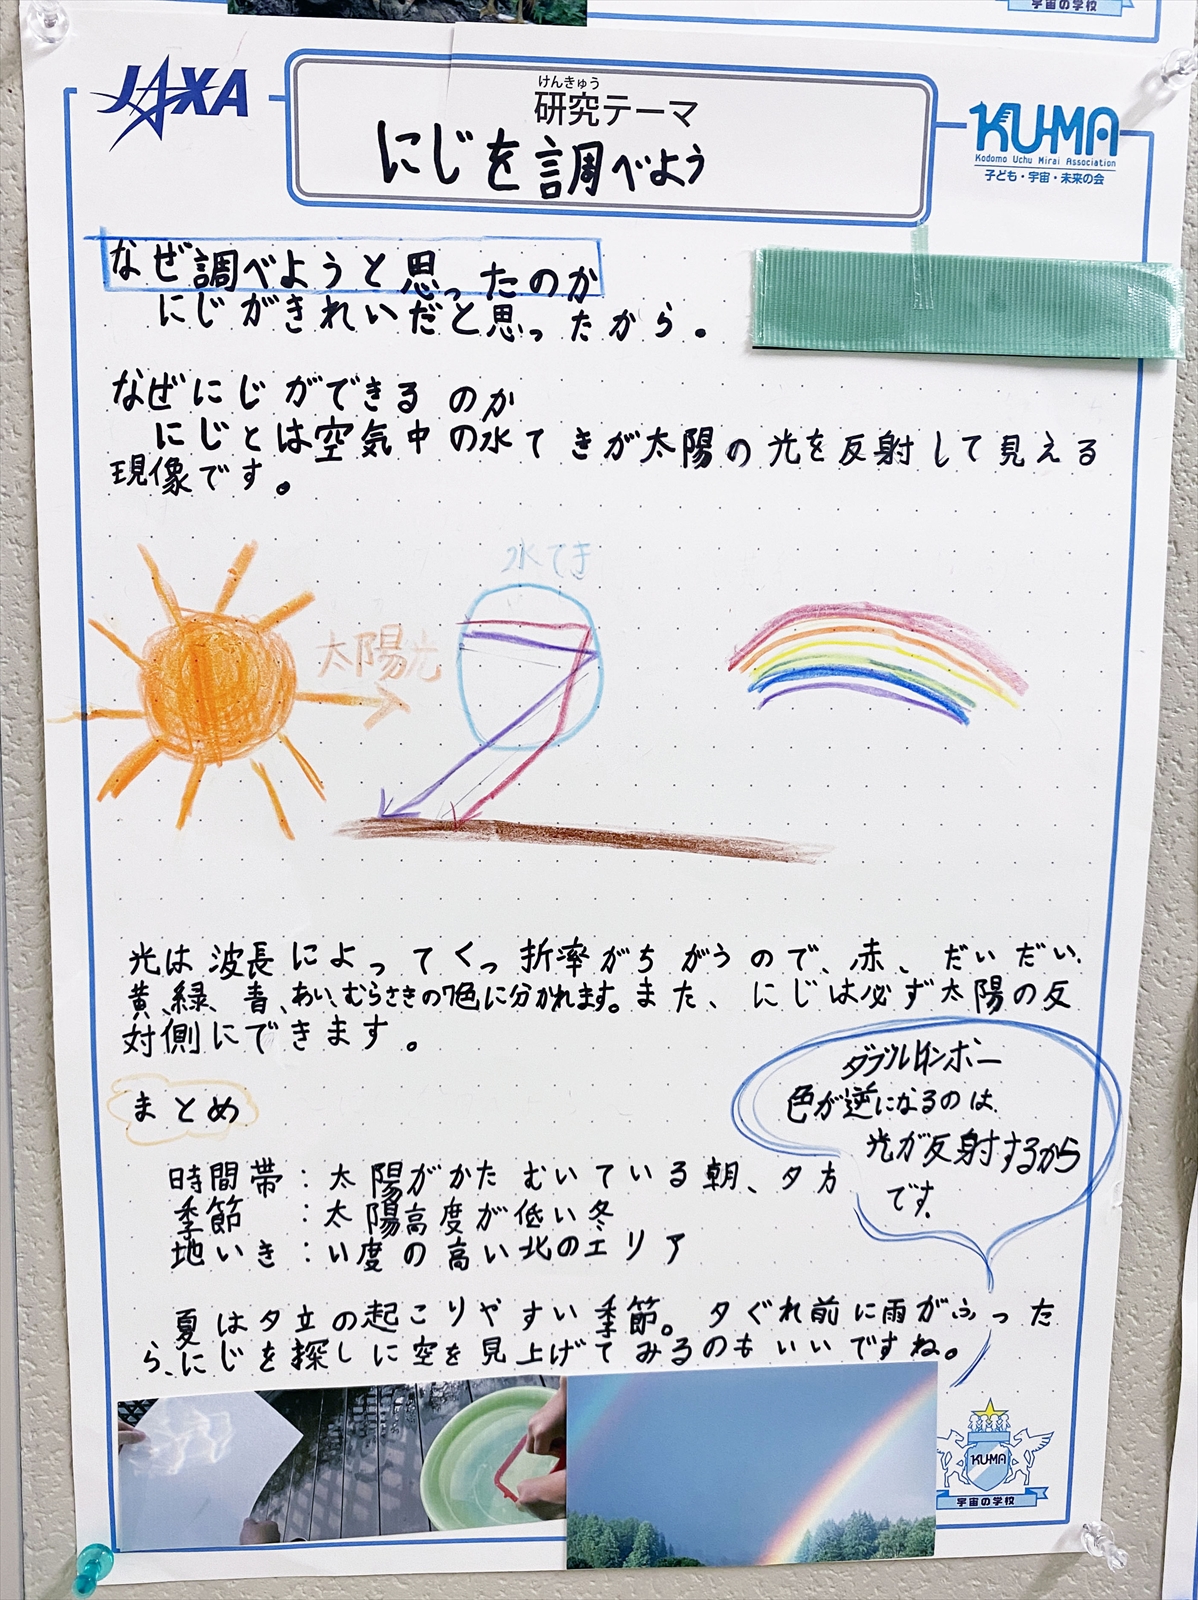 宇宙の学校
JAXA
けんきゅう
研究テーマ
にじを調べよう
KU-MA
Kodomo Uchu Mirai Association
子ども・宇宙・未来の会
なぜ調べようと思ったのか
にじがきれいだと思ったから。
なぜにじができるのか
にじとは空気中の水てきが太陽の光を反射して見える
現像です。
水てき
太陽光
光は波長によってくっ折率がちがうので、赤、だいだい、
黄、緑、青、あい、むらさきの7色に分かれます。また、にじは必ず太陽の反
対側にできます。
ダブルレインボー
色が逆になるのは、
光が反射するから
です。
まとめ
時間帯:太陽がかたむいている朝、夕方
季節:太陽高度が低い冬
地いき:い度の高い北のエリア
夏は夕立の起こりやすい季節。夕ぐれ前に雨がふった
ら、にじを探しに空を見上げてみるのもいいですね。
KU-MA
宇宙の学校